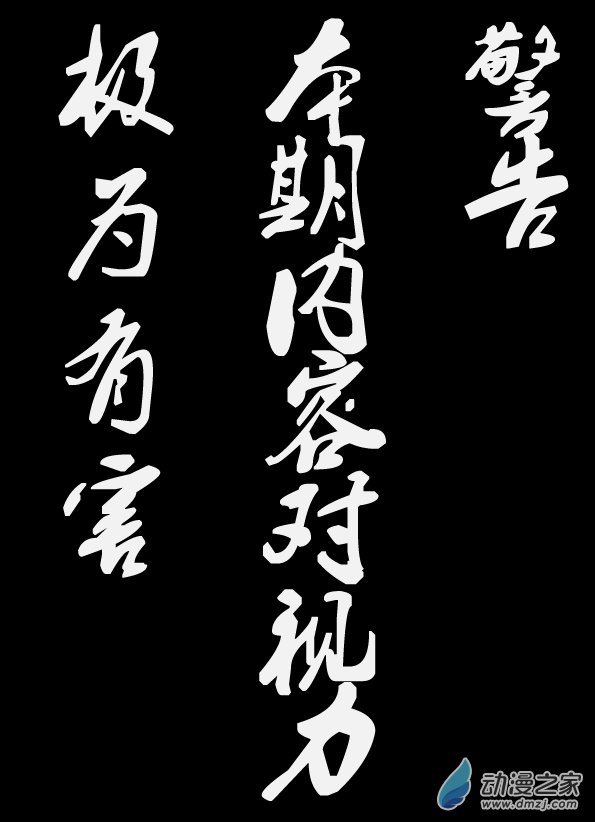 警告
本期内容对视力
极为有害
动漫之家
www.dmzj.com